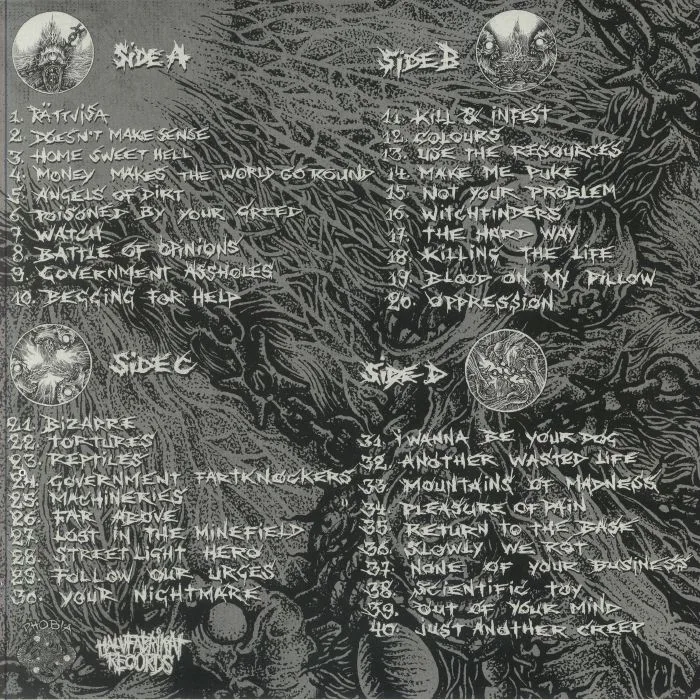 SIDE A
1. RÄTTVISA
2. DOESN'T MAKE SENSE
3. HOME SWEET HELL
4. MONEY MAKES THE WORLD GO ROUND
5. ANGELS OF DIRT
6. POISONED BY YOUR GREED
7. WATCH
8. BATTLE OF OPINIONS
9. GOVERNMENT ASSHOLES
10. BEGGING FOR HELP
SIDE B
11. KILL & INFEST
12. COLOURS
13. USE THE RESOURCES
14. MAKE ME PUKE
15. NOT YOUR PROBLEM
16. WITCHFINDERS
17. THE HARD WAY
18. KILLING THE LIFE
19. BLOOD ON MY PILLOW
20. OPPRESSION
SIDE C
21. BIZARRE
22. TORTURES
23. REPTILES
24. GOVERNMENT FARTKNOCKERS
25. MACHINERIES
26. FAR ABOVE
27. LOST IN THE MINEFIELD
28. STREETLIGHT HERO
29. FOLLOW OUR URGES
30. YOUR NIGHTMARE
SIDE D
31. I WANNA BE YOUR DOG
32. ANOTHER WASTED LIFE
33. MOUNTAINS OF MADNESS
34. PLEASURE OF PAIN
35. RETURN TO THE BASE
36. SLOWLY WE ROT
37. NONE OF YOUR BUSINESS
38. SCIENTIFIC TOY
39. OUT OF YOUR MIND
40. JUST ANOTHER CREEP
PHOBIA
HALVFABRIKAT
RECORDS